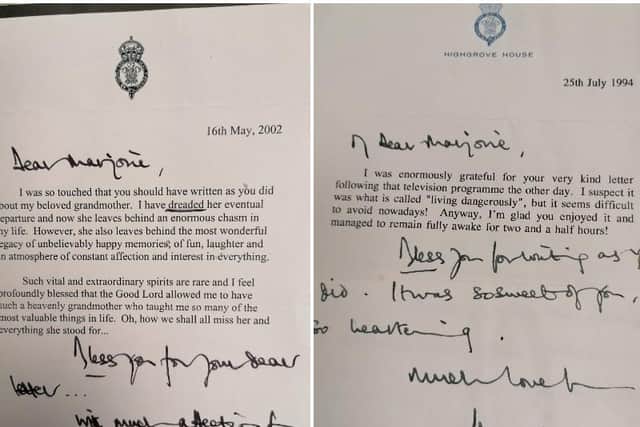 16th May, 2002
Dear Marjorie,
I was so touched that you should have written as you did
bout my beloved grandmother. I have dreaded her eventual
eparture and now she leaves behind an enormous chasm in
y life. However, she also leaves behind the most wonderful
egacy of unbelievably happy memories; of fun, laughter and
n atmosphere of constant affection and interest in everything.
Such vital and extraordinary spirits are rare and I feel
rofoundly blessed that the Good Lord allowed me to have
uch a heavenly grandmother who taught me so many of the
ost valuable things in life. Oh, how we shall all miss her and
verything she stood for...
Bless you for your dear
letter ...
with much affection
HIGHGROVE HOUSE
25th July 1994
My Dear Marjorie,
I was enormously grateful for your very kind letter
following that television programme the other day. I suspect it
was what is called "living dangerously", but it seems difficult
to avoid nowadays! Anyway, I'm glad you enjoyed it and
managed to remain fully awake for two and a half hours!
Bless you for writing as y
did. It was so sweet of you,
so heartening.
Much love